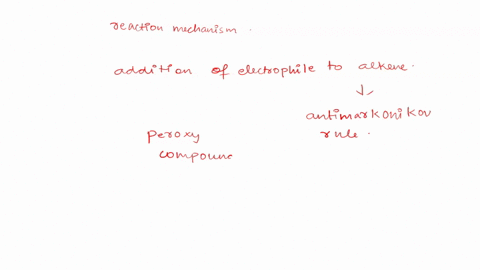 reaction mechanism.
addition of electrophile to alkene.
antimarkonikov
peroxy rule.
compound